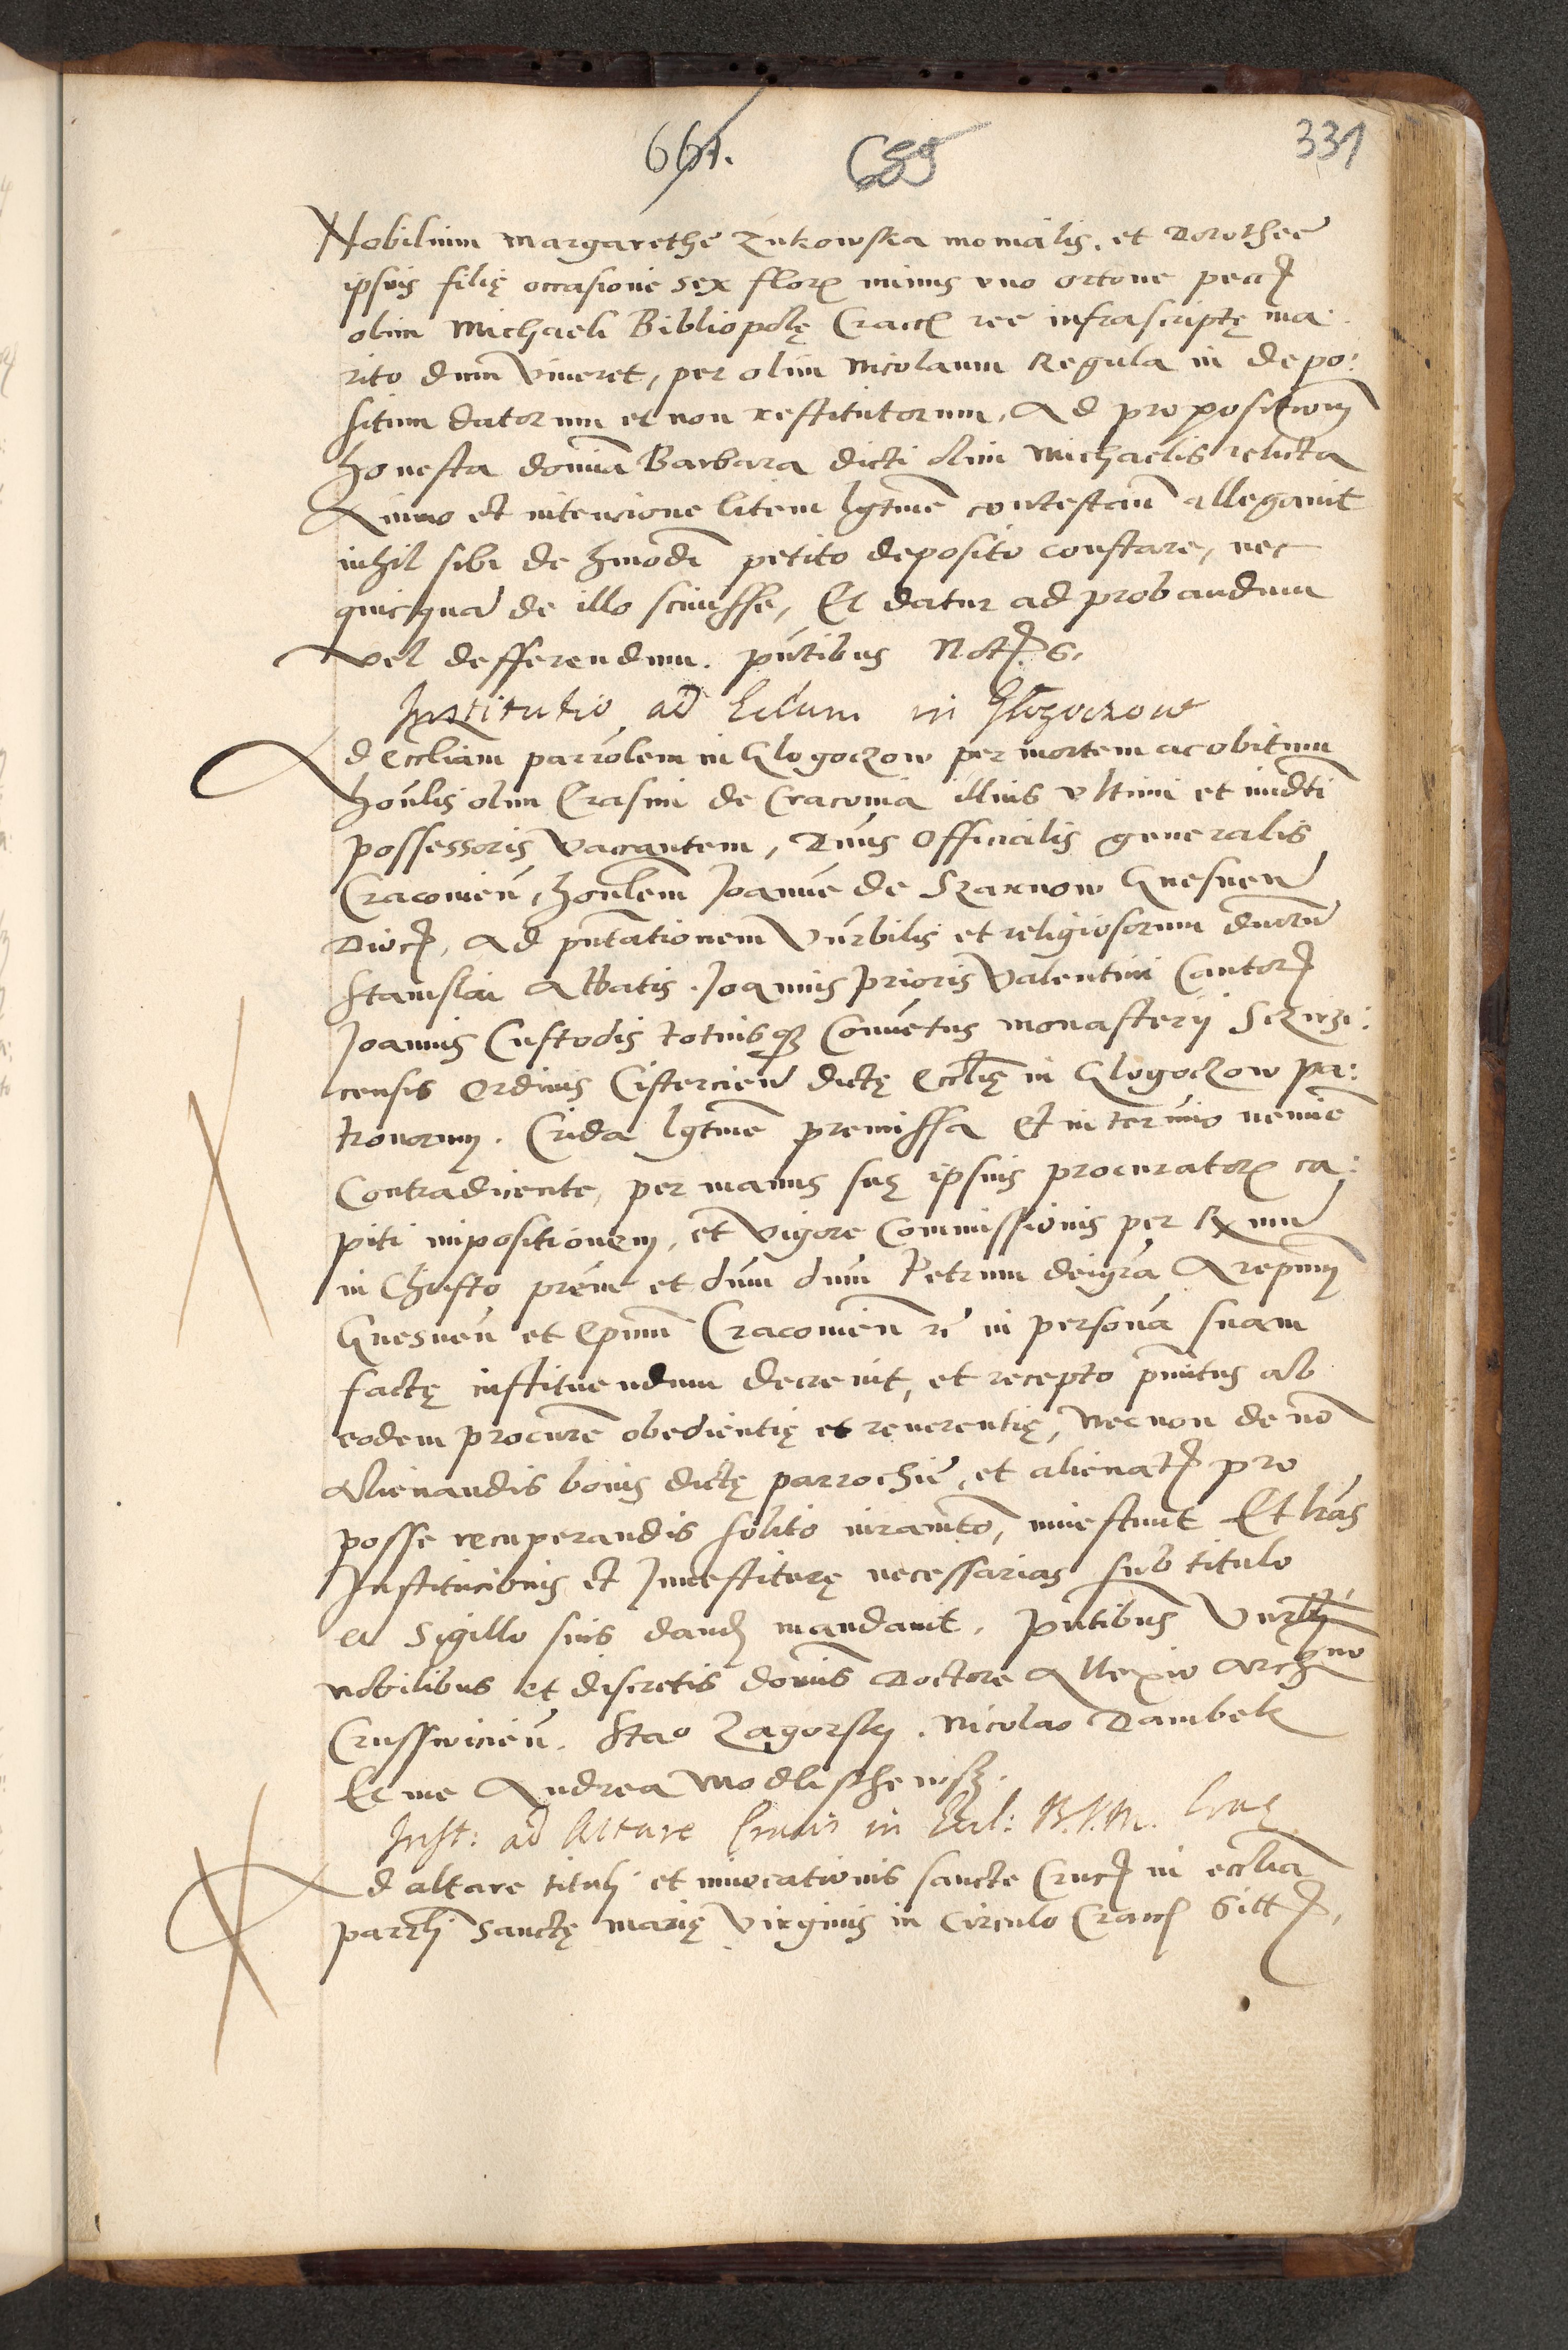 661. 659 331
Nobilium Margarethe Zukowska monialis, et Dorothee
ipsius filię occasione sex flor minus uno ortone pecc
olim Michaeli Bibliopolę Cracc ree infrascriptę ma:
rito dum viveret, per olim Nicolaum Regula in depo:
situm datorum et non restitutorum, Ad propositionem
honesta domina Barbara dicti olim Michaelis relicta
Animo et intencione litem lgtme contestan allegavit
nihil sibi de hmodi petito deposito constare, nec
quicquam de illo scivisse, Et datur ad probandum
vel defferendum. pntibus Nott. 6.
Institutio ad Eclam in Głogoczow
Ad eccliam parrolem in Glogoczow per mortem ac obitum
honlis olim Erasmi de Cracovia illius ultimi et imdti
possessoris vaccantem, Dnus Officialis generalis
Cracovien, honlem Joanne de Szarnow Gnesnen
Dioc, Ad pntationem Vnrbilis et religiosorum dnorum
Stanislai Abbatis, Joannis prioris Valentini Cantor
Joannis Custodis totiusque Conventus monasterii Scziczi:
censis Ordinis Cistercien dictę ecclię in Glogoczow pa:
tronorum. Crida lgtme premissa et in termino nemine
Contradicente, per manus suę ipsius procurator ca:
piti impositionem, et vigore Commissionis per Rxmum
in Christo prem et dnm dnm Petrum dei gra Archepum
Gnesnen et Epum Cracovien re in persona suam
factę instituendum decrevit, et recepto pmitus ab
eodem procure obedientię et reverentię, necnon de no
Alienandis bonis dictę parrochie, et alienat pro
posse recuperandis solito iuramto, investivit Et lras
Institucionis et Investiturę necessarias sub titulo
et Sigillo suis dand mandavit, pntibus Vnrbli
nobilibus et discretis dominis Doctore Allexio Archno
Crusswicien. Stao Zagorsky. Nicolao Dambek
Et me Andrea Modlischewsky.
Inst: ad Altare Crucis in Eccl: B.V.M. Crac
Ad altare tituli et invocationis sancte Cruc in ecclia
parrli Sanctę marię Virginis in Circulo Cracc sitt,